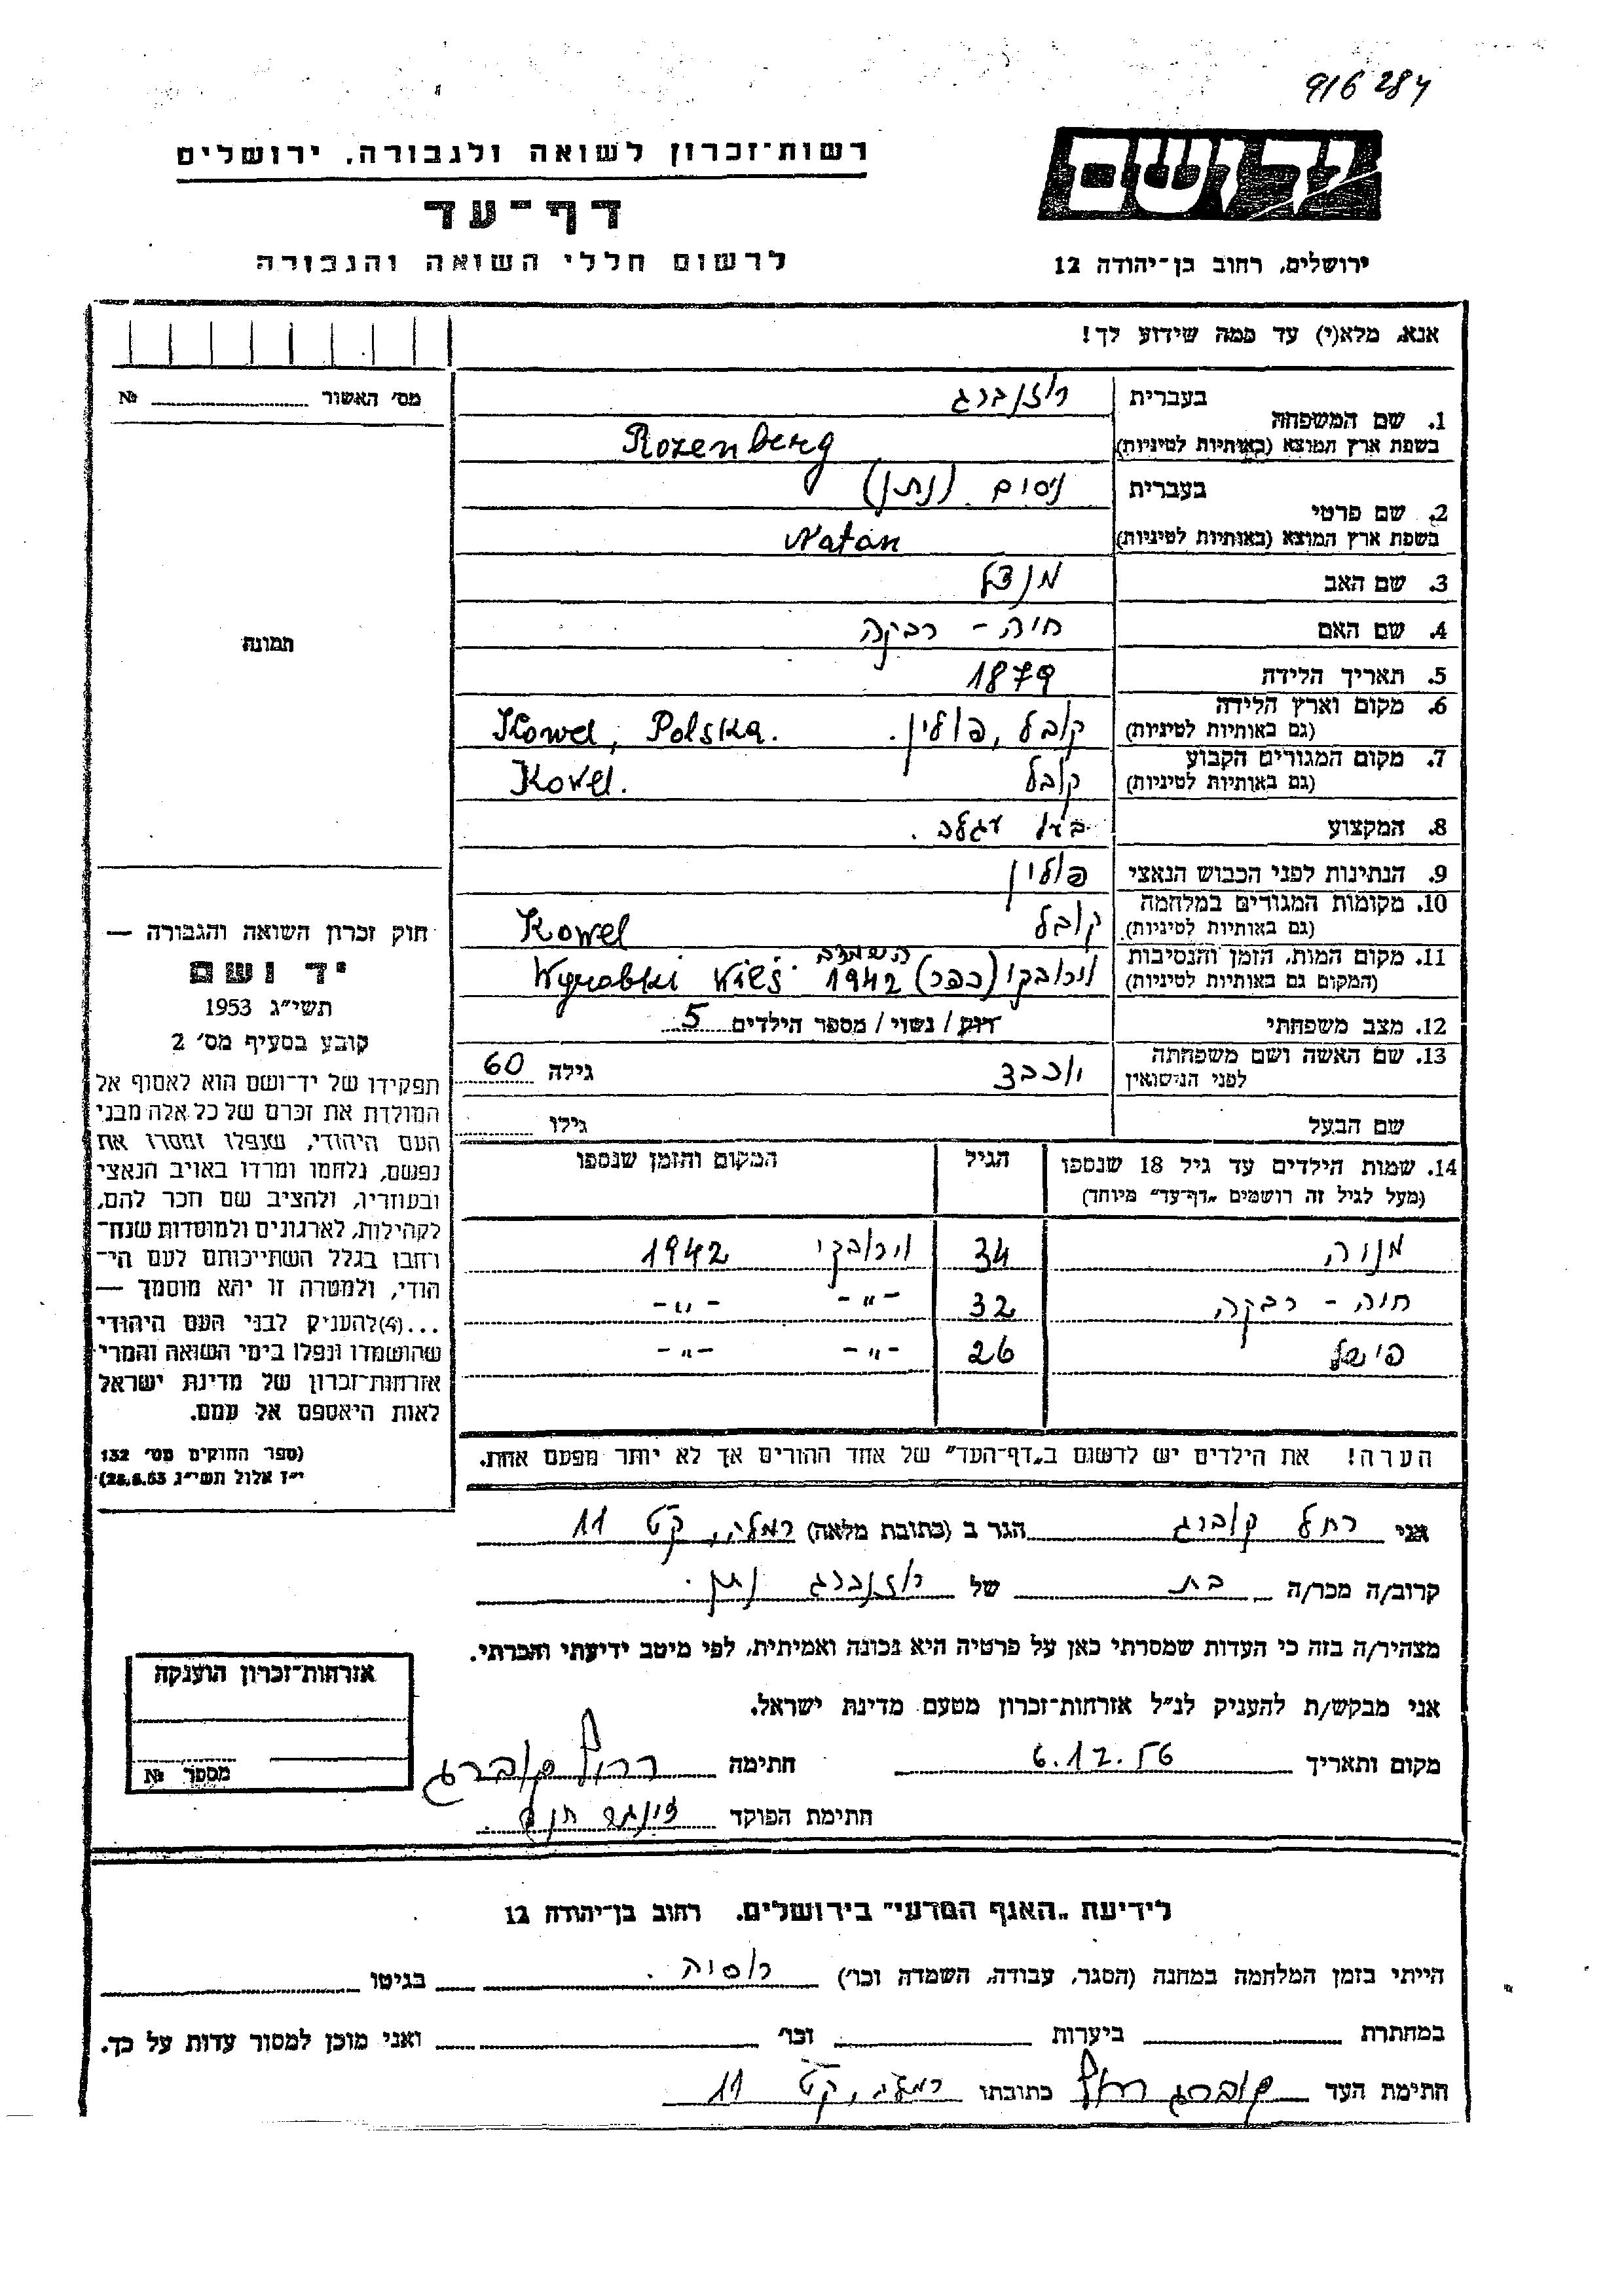 916284
רשות־זכרון לשואה ולגבורה, ירושלים
דף־עד
לרשום חללי השואה והגבורה
יד ושם
ירושלים, רחוב בן־יהודה 12
אנא, מלא(י) עד כמה שידוע לך!
מס׳ האשור № 
תמונה
1. שם המשפחה בעברית רוזנברג
בשפת ארץ המוצא (באותיות לטיניות) Rozenberg
2. שם פרטי בעברית ניסום (נתן)
בשפת ארץ המוצא (באותיות לטיניות) Natan
3. שם האב מנדל
4. שם האם חיה - רבקה
5. תאריך הלידה 1879
6. מקום וארץ הלידה קובל, פולין. Kowel, Polska.
(גם באותיות לטיניות)
7. מקום המגורים הקבוע קובל Kovel.
(גם באותיות לטיניות)
8. המקצוע בעל עגלה.
9. הנתינות לפני הכבוש הנאצי פולין
10. מקומות המגורים במלחמה קובל Kowel
(גם באותיות לטיניות)
11. מקום המות, הזמן והנסיבות השמדה
(המקום גם באותיות לטיניות) וירובקי (כפר) 1942 Wyrobki Wieś
12. מצב משפחתי רווק / נשוי / מספר הילדים 5
13. שם האשה ושם משפחתה יוכבד גילה 60
לפני הנישואין
שם הבעל גילו
14. שמות הילדים עד גיל 18 שנספו הגיל המקום והזמן שנספו
(מעל לגיל זה רושמים „דף־עד״ מיוחד)
מנוה 34 וירובקי 1942
חיה - רבקה 32 -״- -״-
פישל 26 -״- -״-
הערה! את הילדים יש לרשום ב„דף־העד״ של אחד ההורים אך לא יותר מפעם אחת.
חוק זכרון השואה והגבורה —
יד ושם
תשי״ג 1953
קובע בסעיף מס׳ 2
תפקידו של יד־ושם הוא לאסוף אל
המולדת את זכרם של כל אלה מבני
העם היהודי, שנפלו ומסרו את
נפשם, נלחמו ומרדו באויב הנאצי
ובעוזריו, ולהציב שם וזכר להם,
לקהילות, לארגונים ולמוסדות שנח־
רבו בגלל השתייכותם לעם הי־
הודי, ולמטרה זו יהא מוסמך —
...(4) להעניק לבני העם היהודי
שהושמדו ונפלו בימי השואה והמרי
אזרחות־זכרון של מדינת ישראל
לאות היאספם אל עמם.
(ספר החוקים מס׳ 132
י״ז אלול תשי״ג 28.8.53)
אני רחל קוברג הגר ב (כתובת מלאה) רמלה, קט 11
קרוב/ה מכר/ה בת של רוזנברג נתן.
מצהיר/ה בזה כי העדות שמסרתי כאן על פרטיה היא נכונה ואמיתית, לפי מיטב ידיעתי והכרתי.
אני מבקש/ת להעניק לנ״ל אזרחות־זכרון מטעם מדינת ישראל.
מקום ותאריך 6.12.56 חתימה רחל קוברג
חתימת הפוקד
אזרחות־זכרון הוענקה
מספר №
לידיעת „האגף המדעי״ בירושלים, רחוב בן־יהודה 12
הייתי בזמן המלחמה במחנה (הסגר, עבודה, השמדה וכו׳) רוסיה. בגיטו
במחתרת ביערות וכו׳ ואני מוכן למסור עדות על כך.
חתימת העד קוברג רחל כתובתו רמלה, קט 11